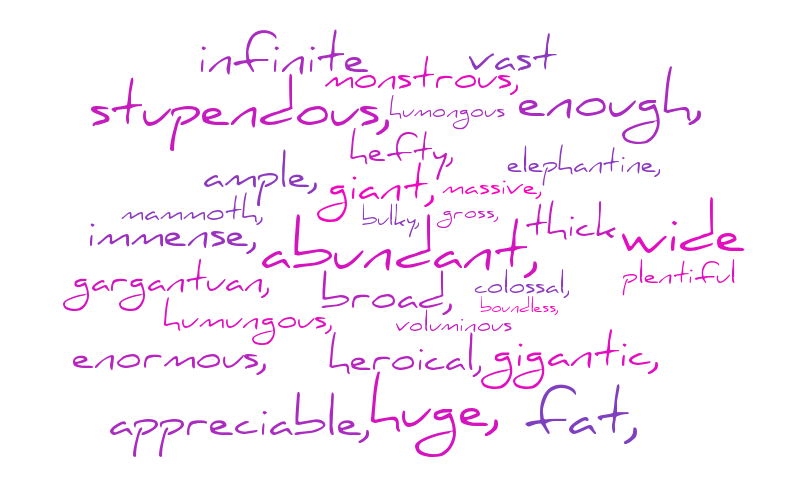 infinite vast
monstrous,
stupendous, humongous enough,
hefty, elephantine,
ample, giant, massive,
mammoth, bulky, gross, thick
immense, abundant, wide
gargantuan, broad, colossal, plentiful
boundless,
humungous, voluminous
enormous, heroical, gigantic,
appreciable, huge, fat,